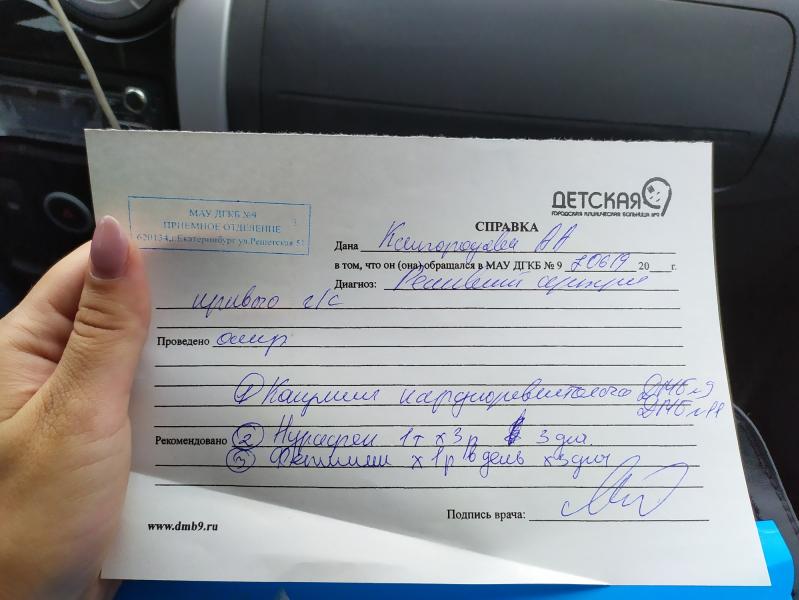 МАУ ДГКБ №9
ПРИЕМНОЕ ОТДЕЛЕНИЕ
620134,г.Екатеринбург ул.Решетская 51
ДЕТСКАЯ
ГОРОДСКАЯ КЛИНИЧЕСКАЯ БОЛЬНИЦА №9
СПРАВКА
Дана АА
в том, что он (она) обращался в МАУ ДГКБ № 9 20619 20 г.
Диагноз: Реактивный
правого г/с
Проведено осмотр
① кардиоревматолога ДМБ №9
ДГКБ №11
Рекомендовано ② Нурофен 1т х 3р 3 дня
③ х 1р в день х 3 дня
Подпись врача:
www.dmb9.ru